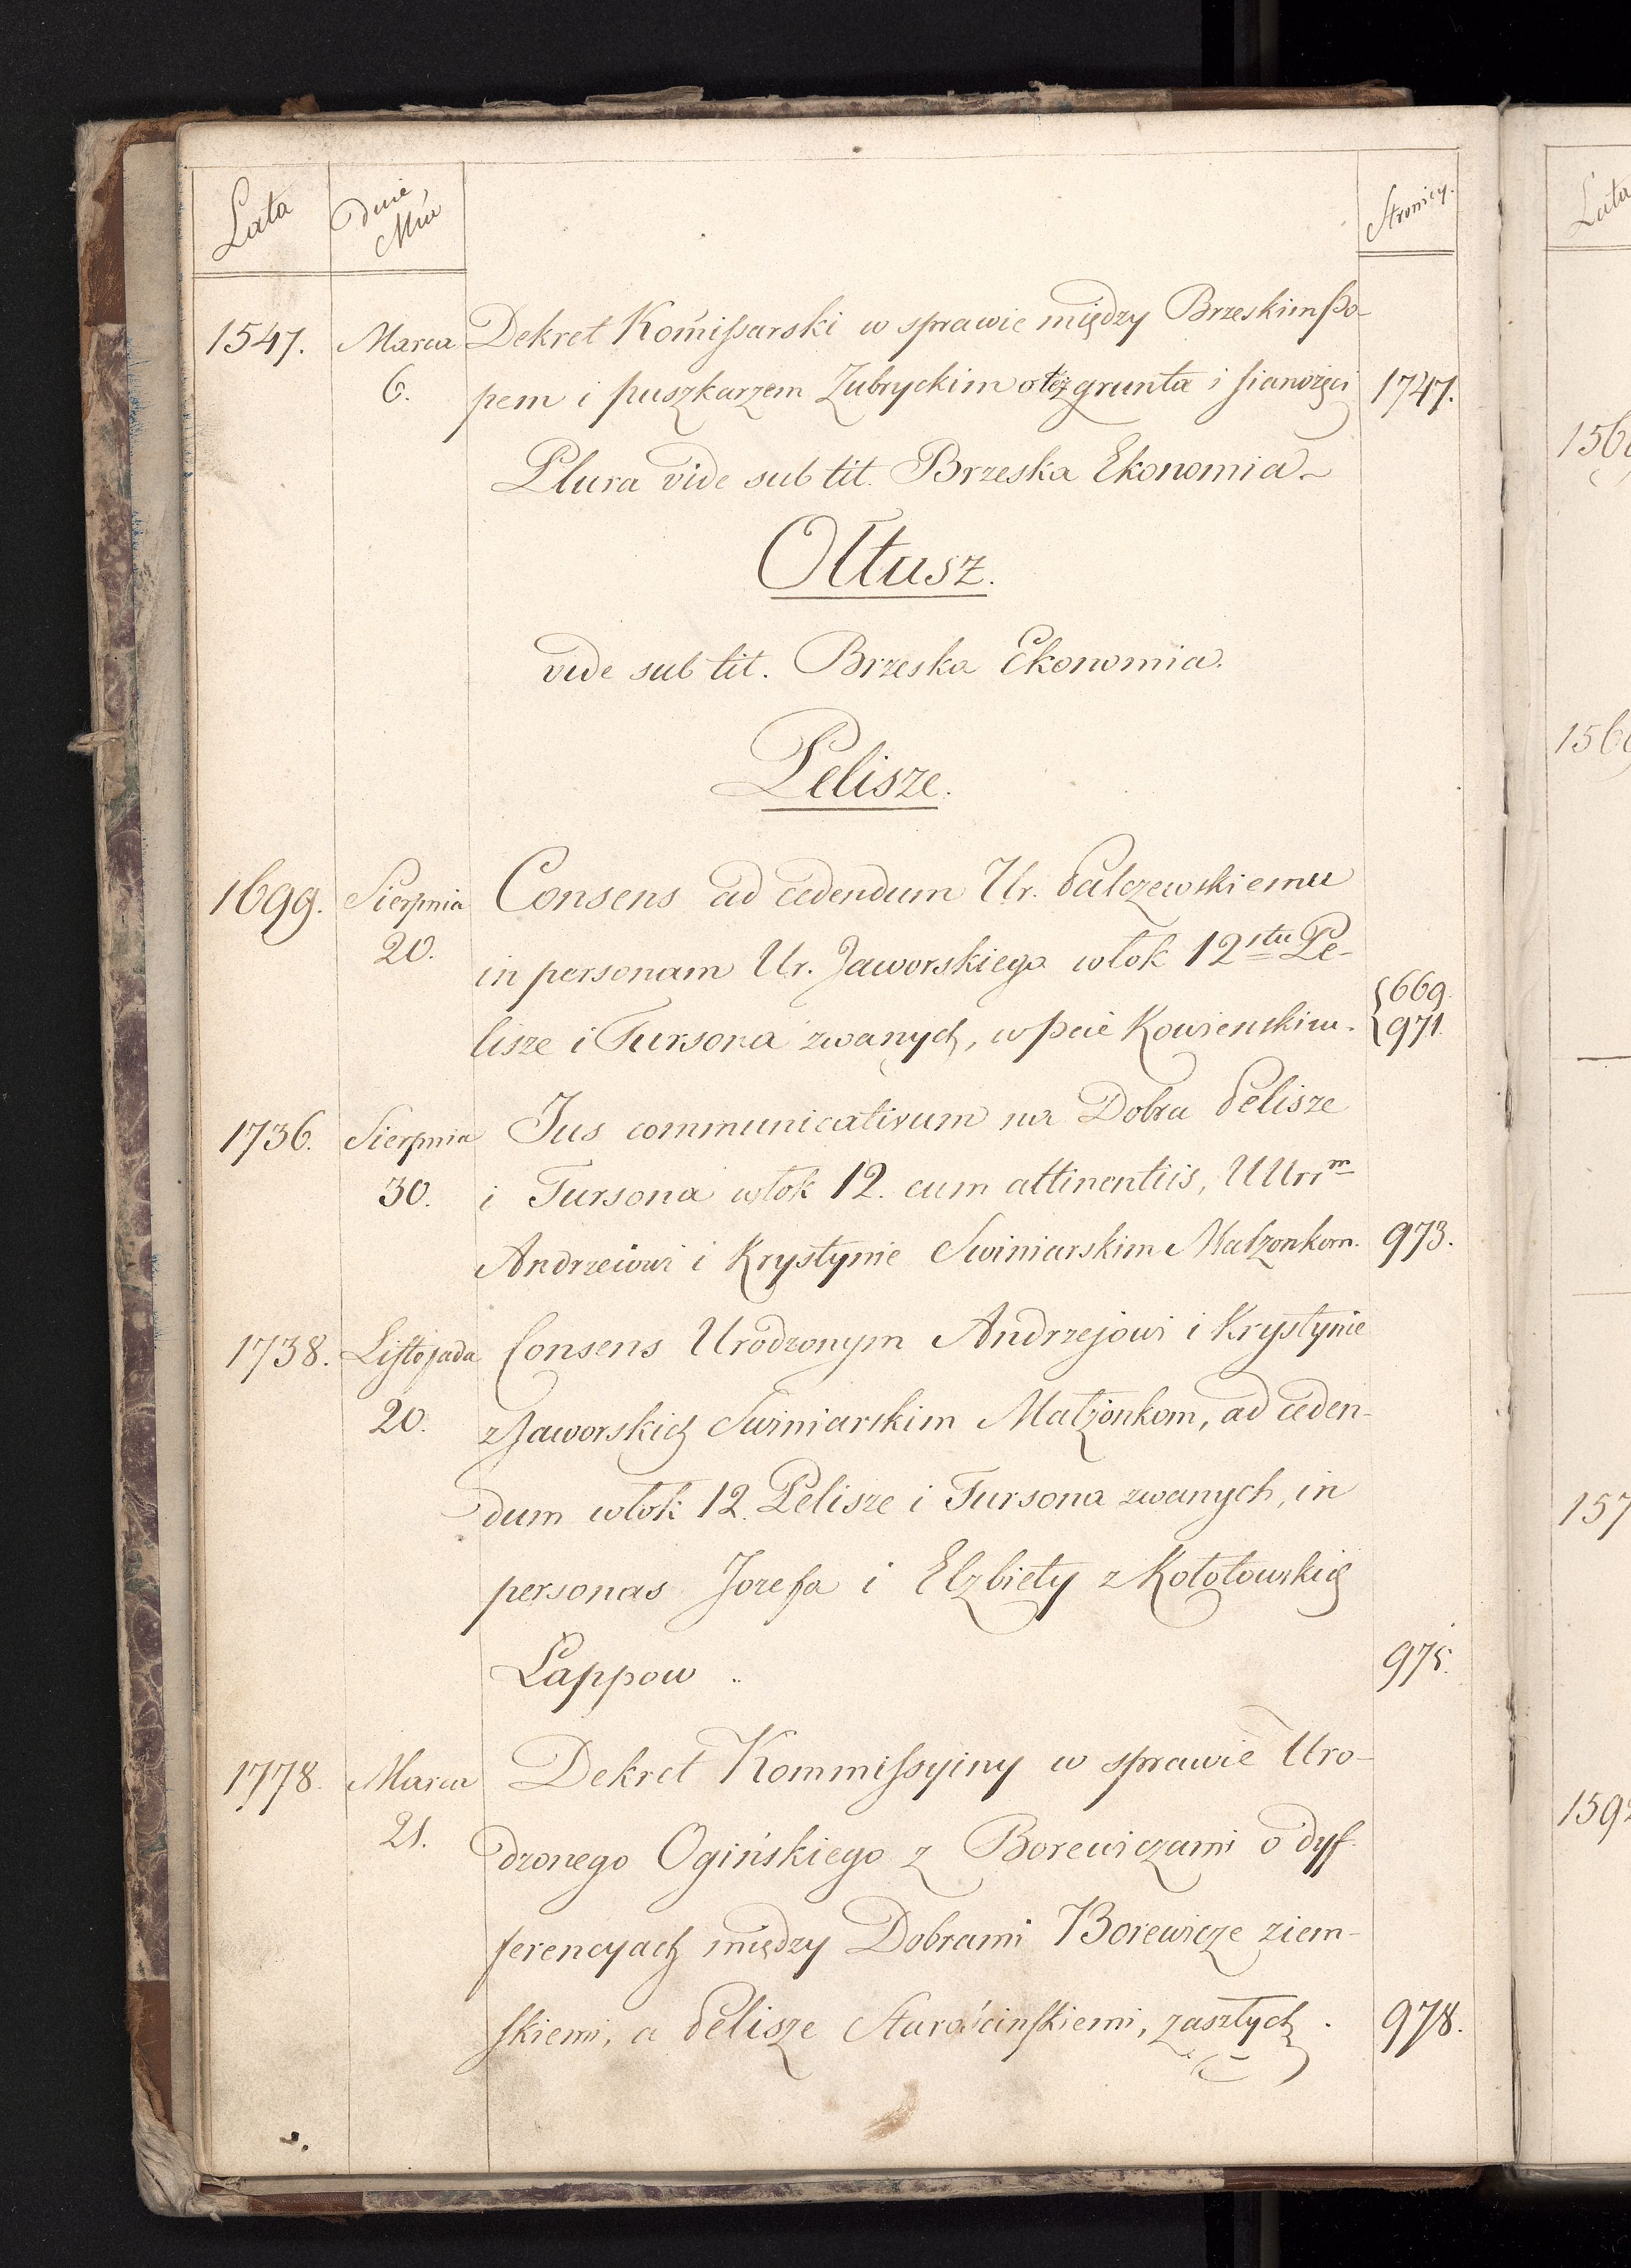 Lata
Dnie,
Mca
Stronicy.
1547. Marca Dekret Komissarski w sprawie między Brzeskim Po-
6. pem i puszkarzem Zubryckim oteż grunta i sianożęci 1747.
Plura vide sub tit. Brzeska Ekonomia.
Ołtusz.
vide sub tit. Brzeska Ekonomia.
Pelisze.
1699. Sierpnia Consens ad cedendum Ur. Palczewskiemu
20. in personam Ur. Jaworskiego włok 12stu Pe-
lisze i Tursona zwanych, w pcie Kowienskim. {669. 971.
1736. Sierpnia Jus communicativum na Dobra Pelisze
30. i Tursona włok 12. cum attinentiis, UUrrm
Andrzeiowi i Krystynie Swiniarskim Małżonkom. 973.
1738. Listopada Consens Urodzonym Andrzejowi i Krystynie
20. z Jaworskich Swiniarskim Małżonkom, ad ceden-
dum włok 12. Pelisze i Tursona zwanych, in
personas Jozefa i Elżbiety z Kołotowskich
Łappow. 975.
1778. Marca Dekret Kommissyiny w sprawie Uro-
21. dzonego Ogińskiego z Borewiczami o dyf-
ferencyach między Dobrami Borewicze ziem-
skiemi, a Pelisze Starościnskiemi, zaszłych. 978.
Lata
157